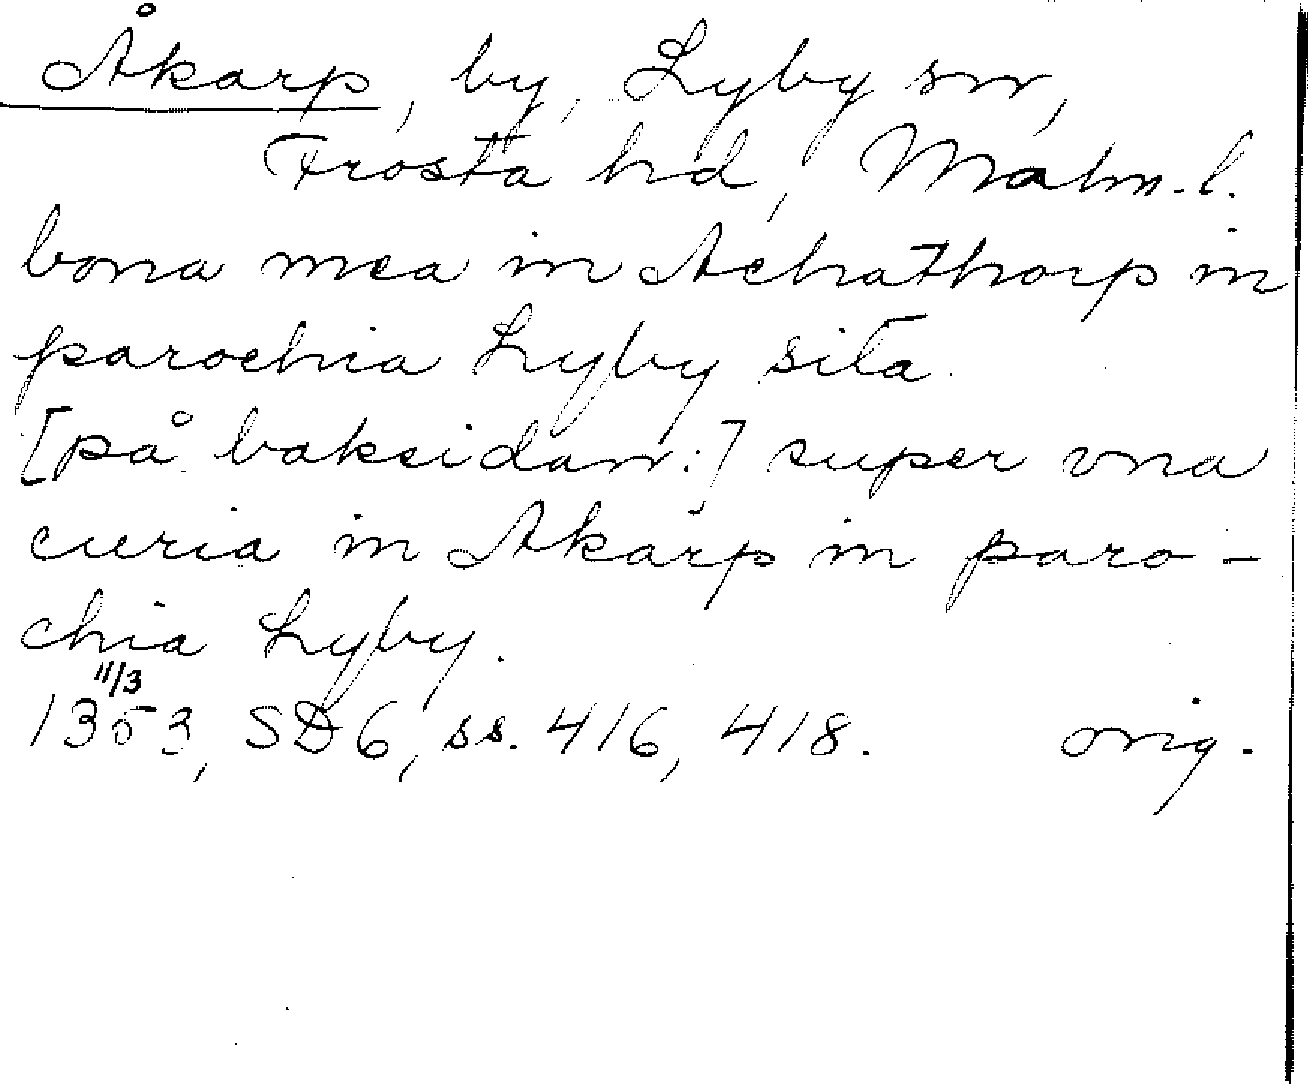 Åkarp, by, Lyby sn,
Frosta hd, Malm. l.
bona mea in Achathorp in
parochia Lyby sita.
[på baksidan:] super vna
curia in Akarp in paro-
chia Lyby.
11/3
1353, SD 6, ss. 416, 418. orig.